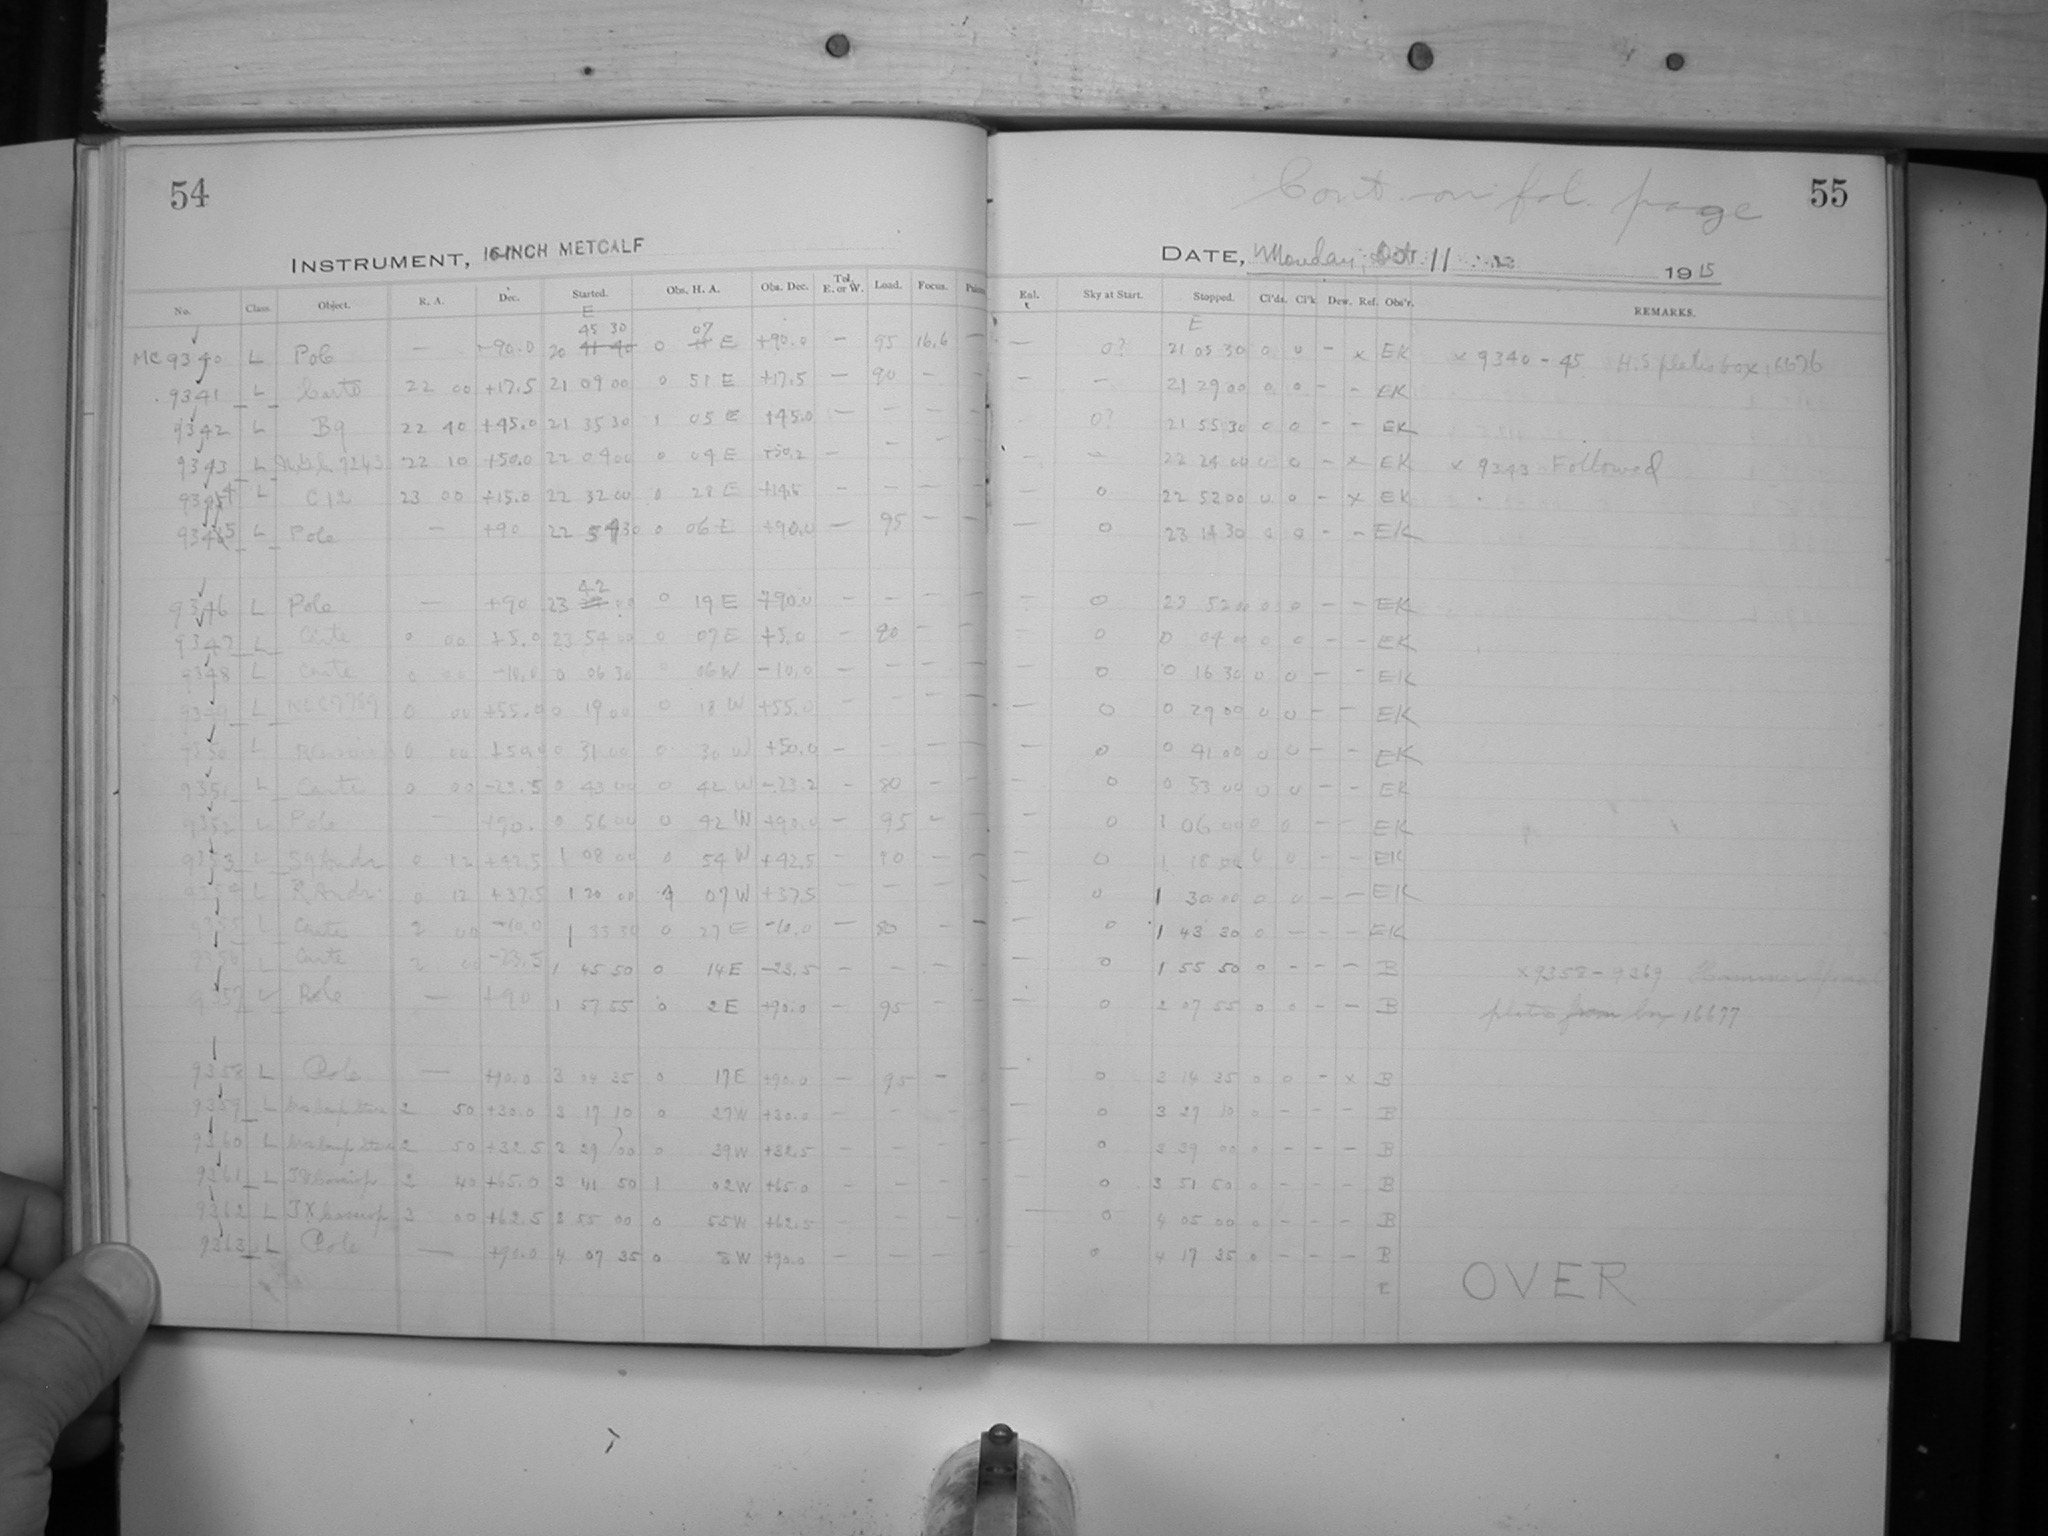 54
INSTRUMENT, 16-INCH METCALF
No. Class. Object. R. A. Dec. Started. Obs. H. A. Obs. Dec. Tel. E. or W. Load. Focus.
E
45 30 07
MC 9340 L Pole — +90.0 20 41 40 0 11 E +90.0 — 95 16.6 —
9341 L Carte 22 00 +17.5 21 09 00 0 51 E +17.5 — 90 — —
9342 L B9 22 40 +45.0 21 35 30 1 05 E +45.0 — — — —
9343 L 22 10 +50.0 22 04 00 0 04 E +50.2 — — —
9344 L C12 23 00 +15.0 22 32 00 0 28 E +14.5 — — — —
9345 L Pole — +90 22 54 30 0 06 E +90.0 — 95 — —
42
9346 L Pole — +90 23 00 0 19 E +90.0 — — — —
9347 L Carte 0 00 +5.0 23 54 00 0 07 E +5.0 — 80 — —
9348 L Carte 0 00 -10.0 0 06 30 0 06 W -10.0 — — — —
9349 L NGC 7789 0 00 +55.0 0 19 00 0 18 W +55.0 — — — —
9350 L 0 00 +50.0 0 31 00 0 30 W +50.0 — — — —
9351 L Carte 0 00 -23.5 0 43 00 0 42 W -23.2 — 80 — —
9352 L Pole — +90. 0 56 00 0 42 W +90.0 — 95 — —
9353 L Andr 0 12 +42.5 1 08 00 0 54 W +42.5 — 80 — —
9354 L R Andr. 0 12 +37.5 1 20 00 07 W +37.5 — — — —
9355 L Carte 2 00 -10.0 1 33 30 0 27 E -10.0 — 80 — —
9356 L Carte 2 00 -23.5 1 45 50 0 14 E -23.5 — — — —
9357 L Pole — +90 1 57 55 0 2 E +90.0 — 95 — —
9358 L Pole — +90.0 3 04 35 0 17 E +90.0 — 95 —
9359 L 2 50 +30.0 3 17 10 0 27 W +30.0 — — — —
9360 L 2 50 +32.5 3 29 00 0 39 W +32.5 — — — —
9361 L 2 40 +65.0 3 41 50 1 02 W +65.0 — — — —
9362 L 3 00 +62.5 3 55 00 0 55 W +62.5 — — — —
9363 L Pole — +90.0 4 07 35 0 8 W +90.0 — — — —
Cont. on fol. page
55
DATE, Monday, Oct. 11 1915
Sky at Start. Stopped. Cl'ds. Cl'k Dew. Ref. Obs'r. REMARKS.
E
— 0? 21 05 30 0 0 — x EK x 9340 - 45 H.S plates box 16676
— — 21 29 00 0 0 — — EK
0? 21 55 30 0 0 — — EK
— — 22 24 00 0 0 — x EK x 9343 Followed
— 0 22 52 00 0 0 — x EK
— 0 23 14 30 0 0 — — EK
— 0 23 52 00 0 0 — — EK
— 0 0 04 00 0 0 — — EK
— 0 0 16 30 0 0 — — EK
— 0 0 29 00 0 0 — — EK
— 0 0 41 00 0 0 — — EK
— 0 0 53 00 0 0 — — EK
— 0 1 06 00 0 0 — — EK
— 0 1 18 00 0 0 — — EK
— 0 1 30 00 0 0 — — EK
— 0 1 43 30 0 — — — EK
— 0 1 55 50 0 — — — B x 9358 - 9369 Hammer
— 0 2 07 55 0 0 — — B plates from box 16677
— 0 3 14 35 0 0 — x B
— 0 3 27 10 0 — — — B
— 0 3 39 00 0 — — — B
— 0 3 51 50 0 — — — B
— 0 4 05 00 0 — — — B
0 4 17 35 0 — — — B
E
OVER